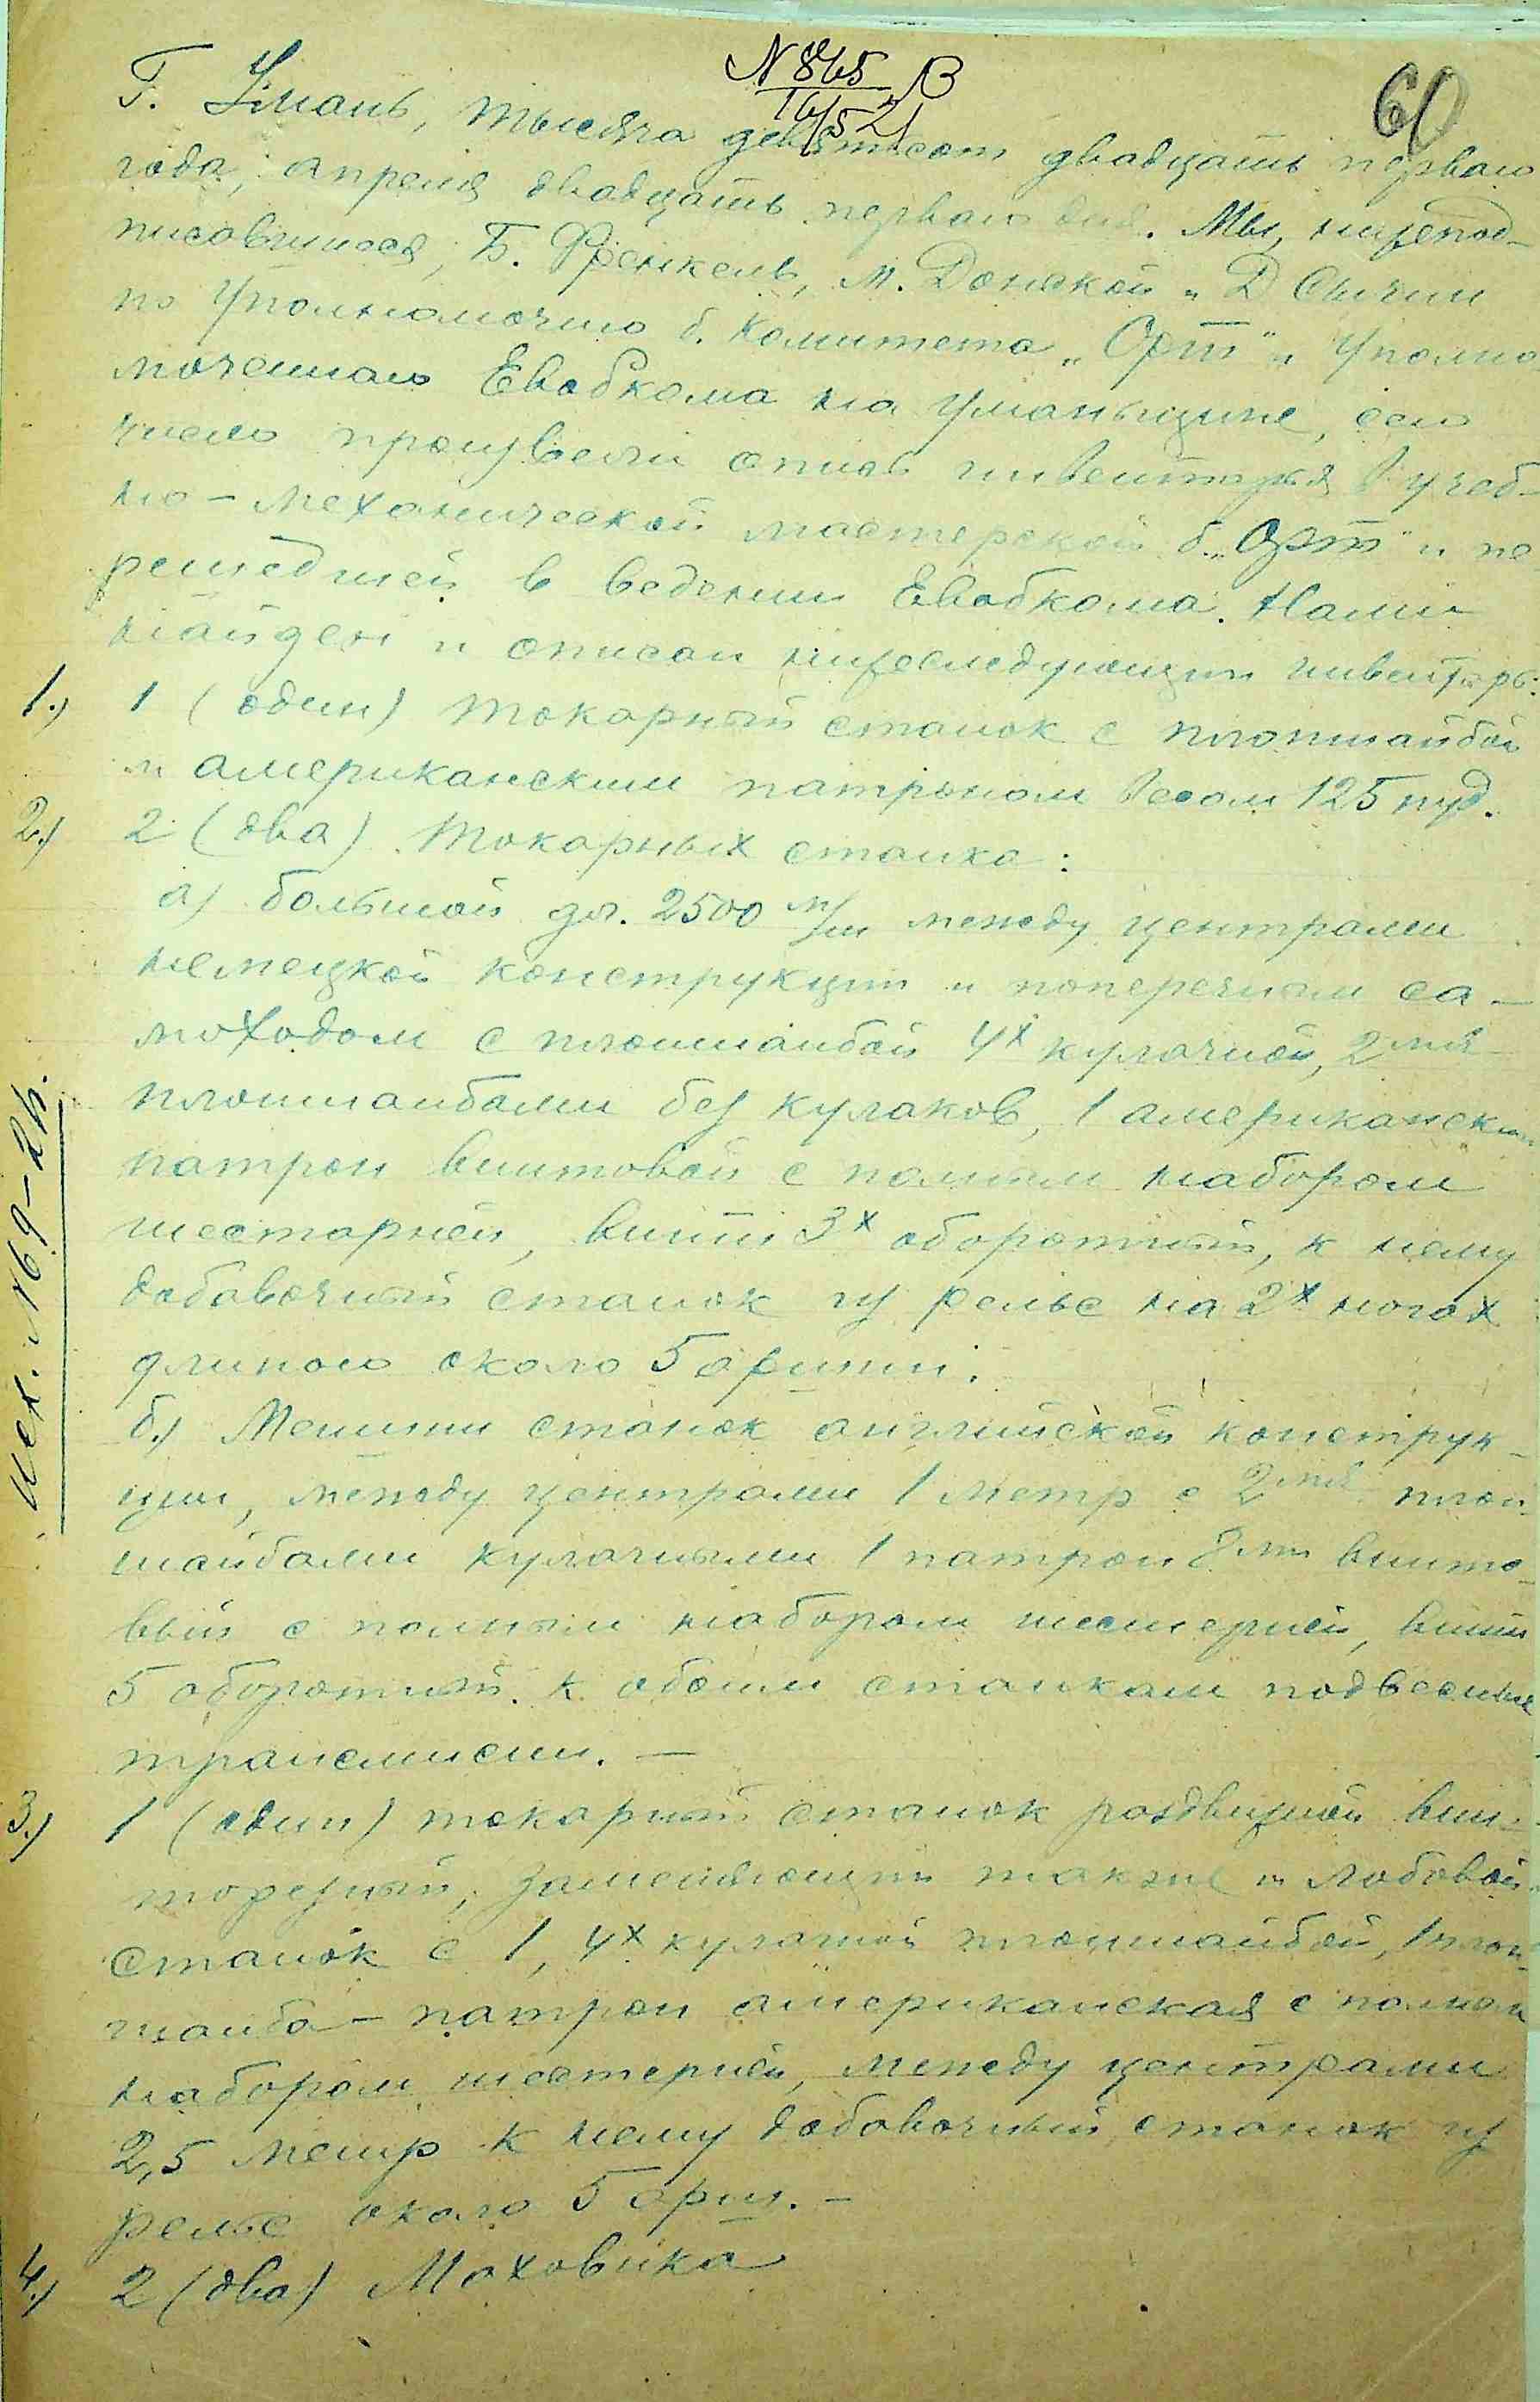 N 865 В
16/5 21
60
Г. Умань, тысяча девятьсот двадцать первого
года, апреля двадцать первого дня. Мы, нижепод-
писавшиеся, Б. Френкель, М. Донской и Д
по уполномочию б. Комитета „Орт" и Уполно-
моченного Евобкома на Уманьщине, сего
числа произвели опись инвентаря в учеб-
но-механической мастерской б. „Орт" и пе-
решедшей в ведении Евобкома. Нами
найден и описан нижеследующий инвентарь:
1.) 1 (один) токарный станок с планшайбой
и американским патроном весом 125 пуд.
2.) 2 (два) токарных станка:
а) большой дл. 2500 м/м между центрами
немецкой конструкции и поперечным са-
моходом с планшайбой 4х кулачной, 2мя
планшайбами без кулаков, 1 американский
патрон винтовой с полным набором
шестарней, винт 3х оборотный, к нему
добавочный станок из рельс на 2х ногах
длиною около 5 аршин.
б.) Менший станок английской конструк-
ции, между центрами 1 метр с 2мя план-
шайбами кулачными 1 патрон винто-
вый с полным набором шестерней, винт
5 оборотный. К обоим станкам подвесные
трансмисии. —
3.) 1 (один) токарный станок раздвижной вин-
торезный, заменяющий также и лобовой
станок с 1, 4х кулачной планшайбой, 1 план-
шайба - патрон американская с полным
набором шестерней, между центрами
2,5 метр к нему добавочный станок из
рельс около 5 арш. —
4.) 2 (два) Маховика
Исх. № 69-24.